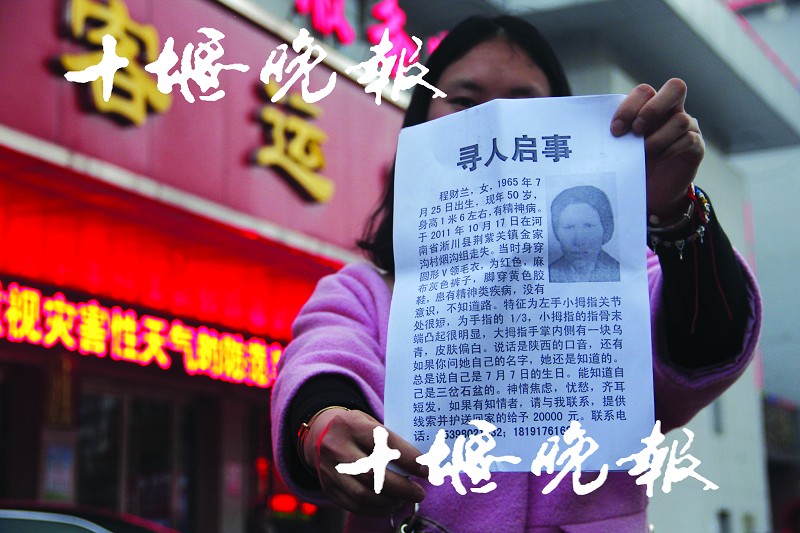 客运
十堰晚报
视灾害性天气的
寻人启事
程财兰，女，1965年7
月25日出生，现年50岁，
身高1米6左右，有精神病。
于2011年10月17日在河
南省淅川县荆紫关镇金家
沟村烟沟组走失。当时身穿
圆形V领毛衣，为红色，麻
布灰色裤子，脚穿黄色胶
鞋，患有精神类疾病，没有
意识，不知道路。特征为左手小拇指关节
处很短，为手指的1/3，小拇指的指骨末
端凸起很明显，大拇指手掌内侧有一块乌
青，皮肤偏白。说话是陕西的口音，还有
如果你问她自己的名字，她还是知道的。
总是说自己是7月7日的生日。能知道自
己是三岔石盆的。神情焦虑，忧愁，齐耳
短发，如果有知情者，请与我联系，提供
线索并护送回家的给予20000元。联系电
话：
十堰晚报